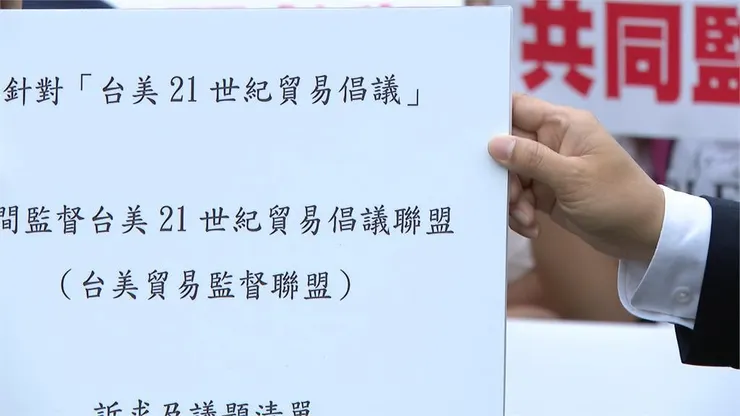 針對「台美21世紀貿易倡議」
間監督台美21世紀貿易倡議聯盟
（台美貿易監督聯盟）
訴求及議題清單
共同監